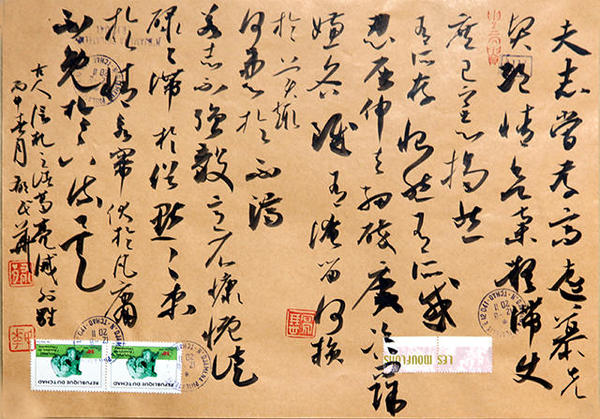 夫志當存高遠慕先
賢絕情欲棄疑滯使
庶幾之志揭然
有所存惻然有所感
忍屈伸去細碎廣咨問除
嫌吝雖有淹留何損
於美趣
何患於不濟
若志不強毅意不慷慨徒
碌碌滯於俗默默束
於情永竄伏於凡庸
不免於下流矣
古人信札之諸葛亮誡外甥
春月
LES MOUFLONS
REPUBLIQUE DU TCHAD
REPUBLIQUE DU TCHAD